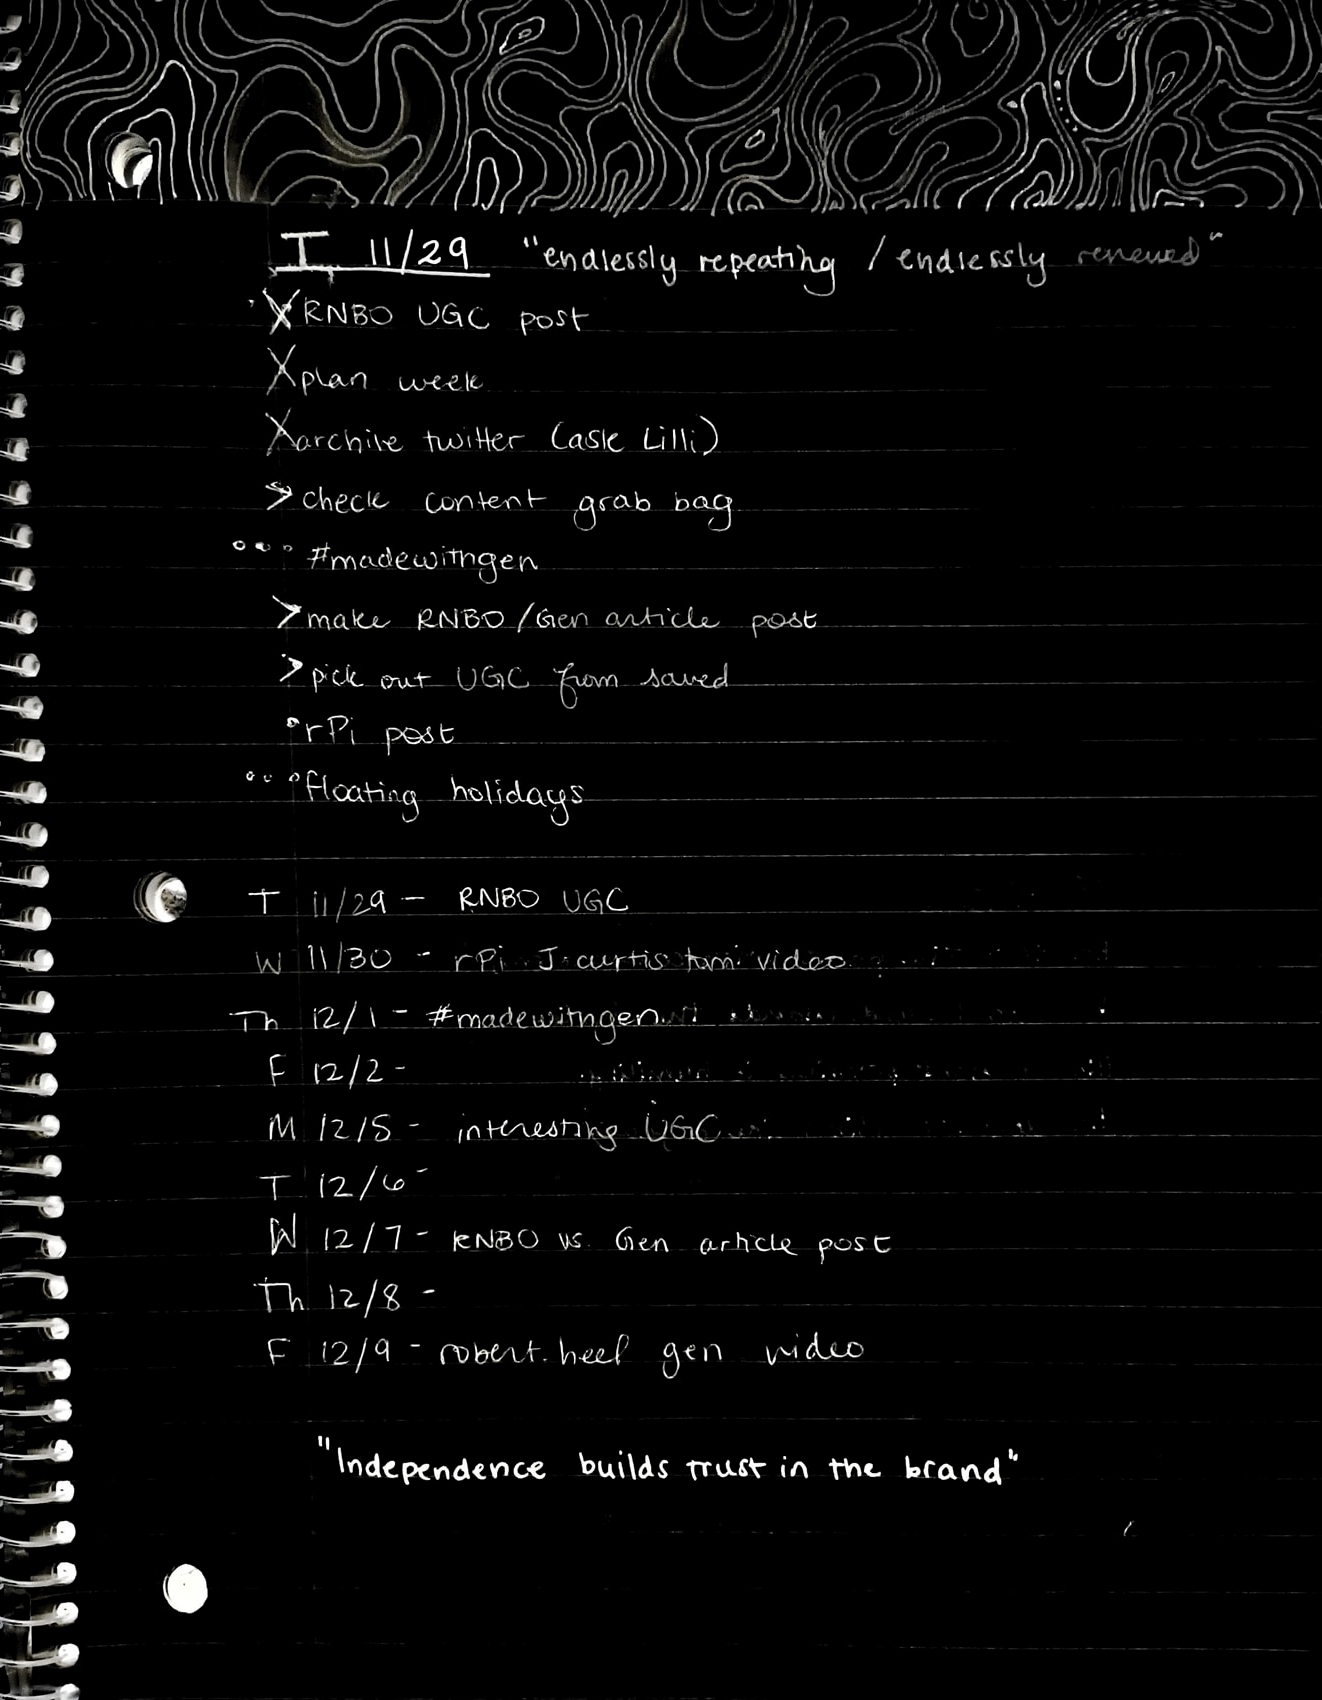 T 11/29 "endlessly repeating / endlessly renewed"
X RNBO UGC post
X plan week
X archive twitter (ask Lilli)
> check content grab bag
°°° #madewithgen
> make RNBO/Gen article post
> pick out UGC from saved
° rPi post
°°° floating holidays
T 11/29 - RNBO UGC
W 11/30 - rPi J.curtis video
Th 12/1 - #madewithgen
F 12/2 -
M 12/5 - interesting UGC
T 12/6 -
W 12/7 - RNBO vs. Gen article post
Th 12/8 -
F 12/9 - robert.heel gen video
"Independence builds trust in the brand"